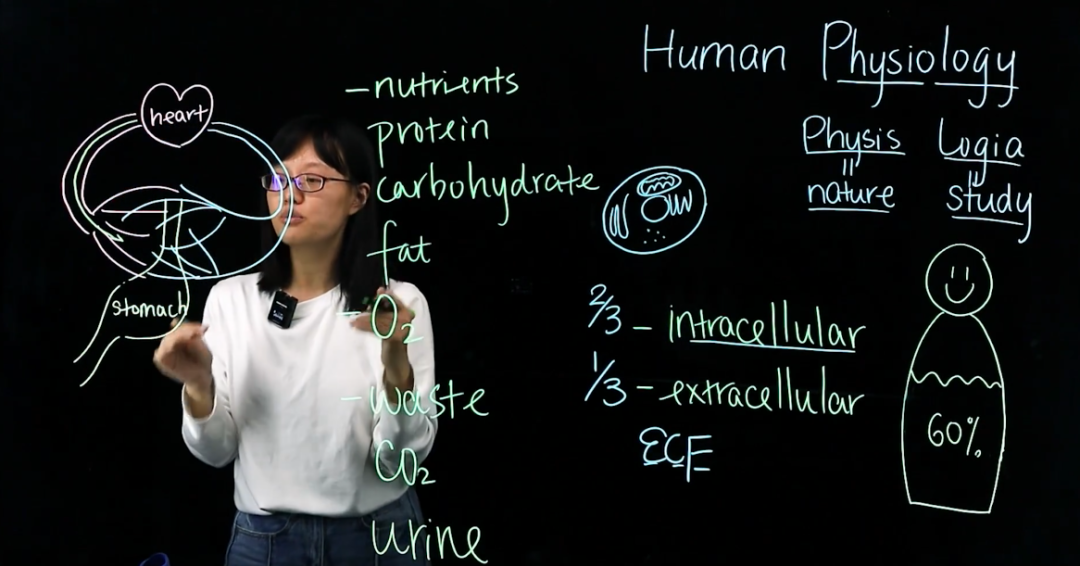 heart
stomach
- nutrients
protein
carbohydrate
fat
- O₂
- waste
CO₂
urine
Human Physiology
Physis Logia
= =
nature study
2/3 - intracellular
1/3 - extracellular
ECF
60%